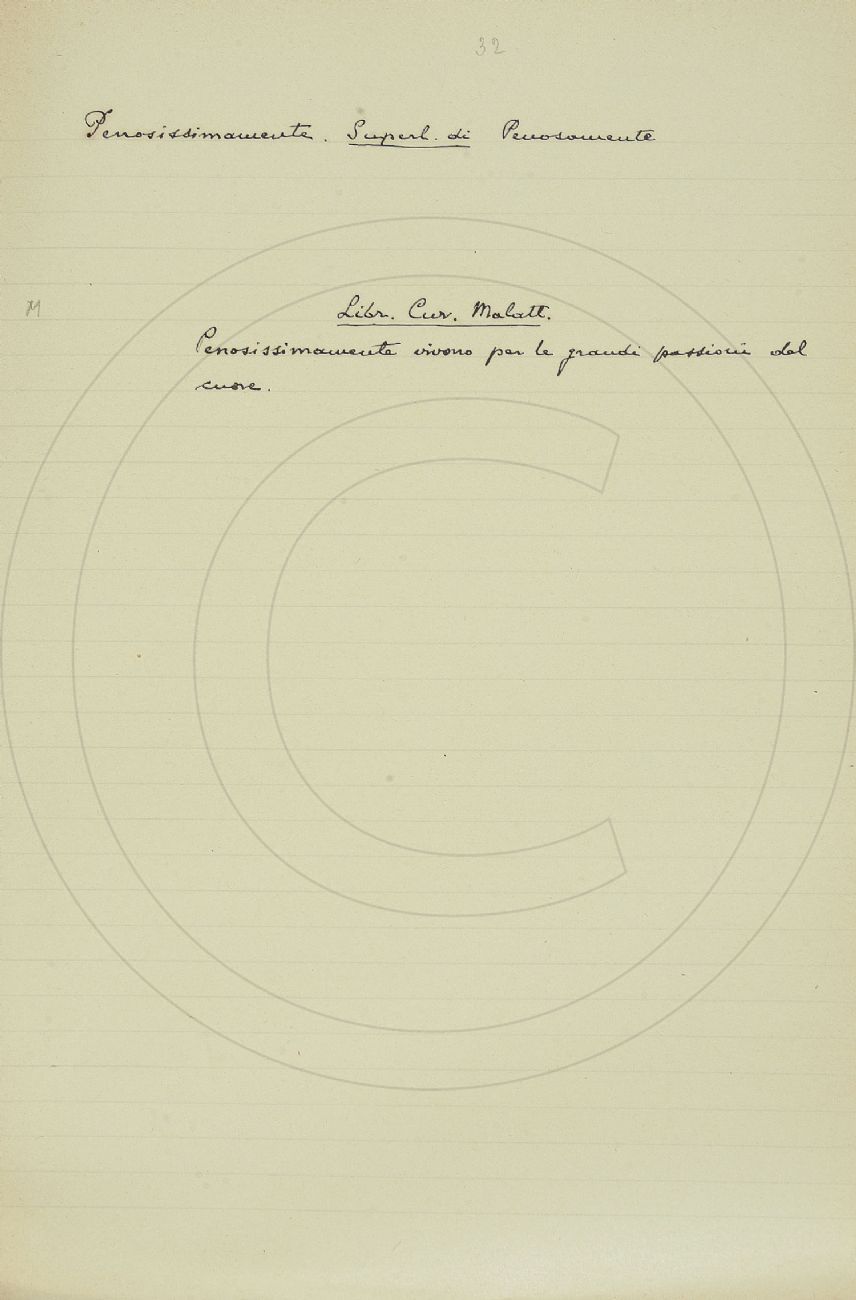 32
Penosissimamente. Superl. di Penosamente
M Libr. Cur. Malatt.
Penosissimamente vivono per le grandi passioni del
cuore.